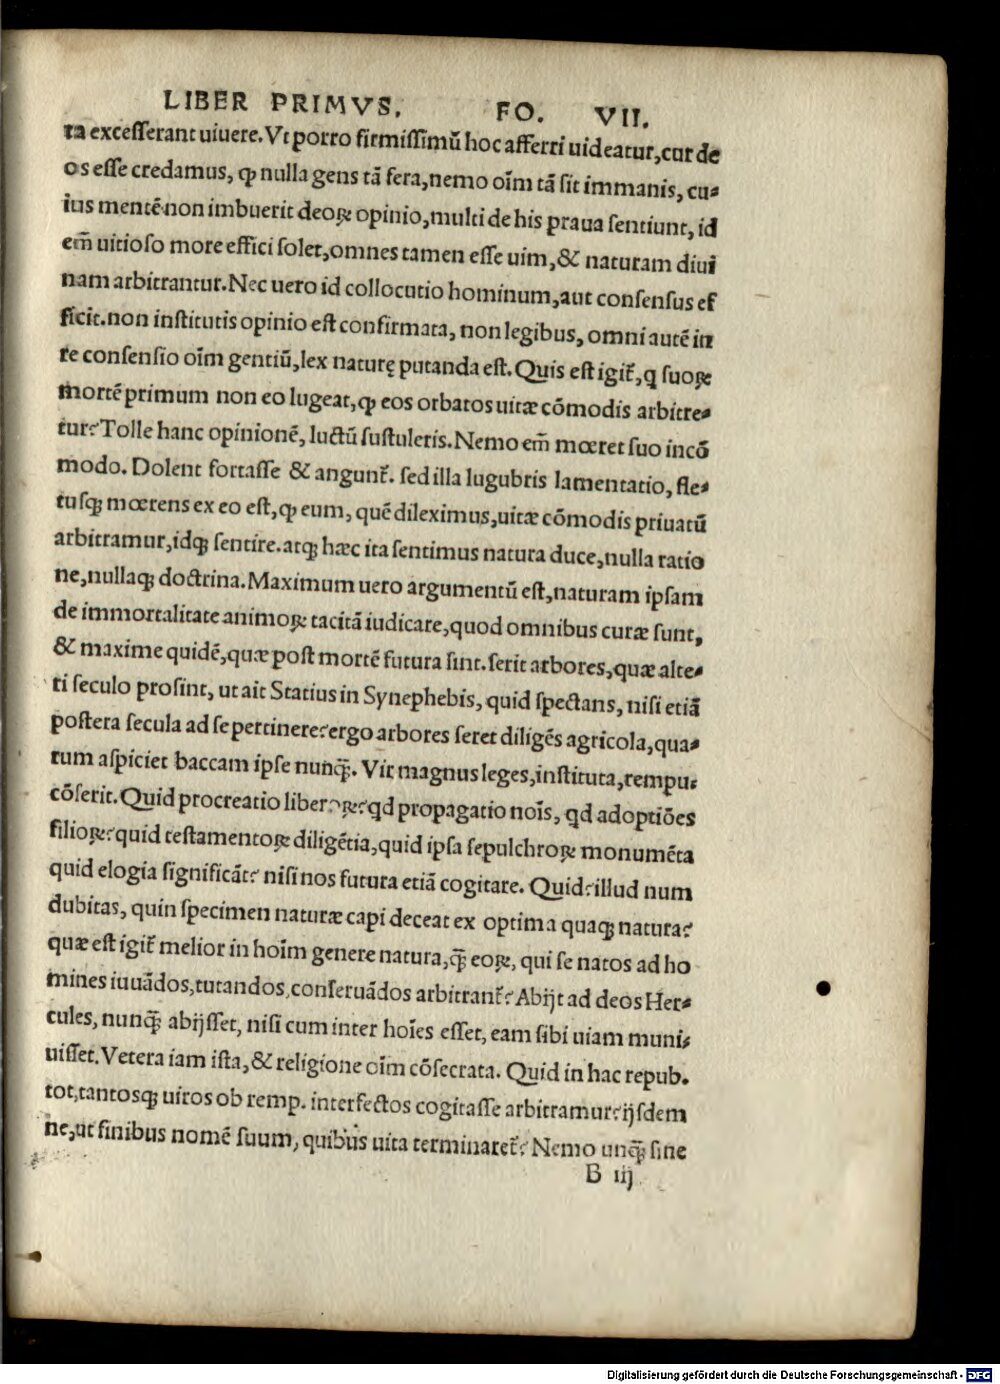 LIBER PRIMVS. FO. VII.
ta excesserant uiuere. Vt porro firmissimũ hoc afferri uideatur, cur de
os esse credamus, ꝙ nulla gens tã fera, nemo oĩm tã sit immanis, cu-
ius mentẽ non imbuerit deoꝝ opinio, multi de his praua sentiunt, id
em̃ uitioso more effici solet, omnes tamen esse uim, & naturam diui
nam arbitrantur. Nec uero id collocutio hominum, aut consensus ef
ficit. non institutis opinio est confirmata, non legibus, omni autẽ in
re consensio oĩm gentiũ, lex naturę putanda est. Quis est igit̃, q suoꝝ
mortẽ primum non eo lugeat, ꝙ eos orbatos uitæ cõmodis arbitre-
tur? Tolle hanc opinionẽ, luctũ sustuleris. Nemo em̃ mœret suo incõ
modo. Dolent fortasse & angunt̃. sed illa lugubris lamentatio, fle-
tusqꝫ mœrens ex eo est, ꝙ eum, quẽ dileximus, uitæ cõmodis priuatũ
arbitramur, idqꝫ sentire. atqꝫ hæc ita sentimus natura duce, nulla ratio
ne, nullaqꝫ doctrina. Maximum uero argumentũ est, naturam ipsam
de immortalitate animoꝝ tacitã iudicare, quod omnibus curæ sunt,
& maxime quidẽ, quæ post mortẽ futura sint. serit arbores, quæ alte-
ri seculo prosint, ut ait Statius in Synephebis, quid spectans, nisi etiã
postera secula ad se pertinere? ergo arbores seret diligẽs agricola, qua-
rum aspiciet baccam ipse nunq̃. Vir magnus leges, instituta, rempu-
cõserit. Quid procreatio liberoꝝ? qd propagatio noĩs, qd adoptiões
filioꝝ? quid testamentoꝝ diligẽtia, quid ipsa sepulchroꝝ monumẽta
quid elogia significãt? nisi nos futura etiã cogitare. Quid? illud num
dubitas, quin specimen naturæ capi deceat ex optima quaqꝫ natura?
quæ est igit̃ melior in hoĩm genere natura, q̃ eoꝝ, qui se natos ad ho
mines iuuãdos, tutandos, conseruãdos arbitrant̃? Abijt ad deos Her-
cules, nunq̃ abijsset, nisi cum inter hoĩes esset, eam sibi uiam muni-
uisset. Vetera iam ista, & religione oĩm cõsecrata. Quid in hac repub.
tot, tantosqꝫ uiros ob remp. interfectos cogitasse arbitramur? ijsdem
ne, ut finibus nomẽ suum, quibus uita terminaret̃? Nemo unq̃ sine
B iij
Digitalisierung gefördert durch die Deutsche Forschungsgemeinschaft - DFG